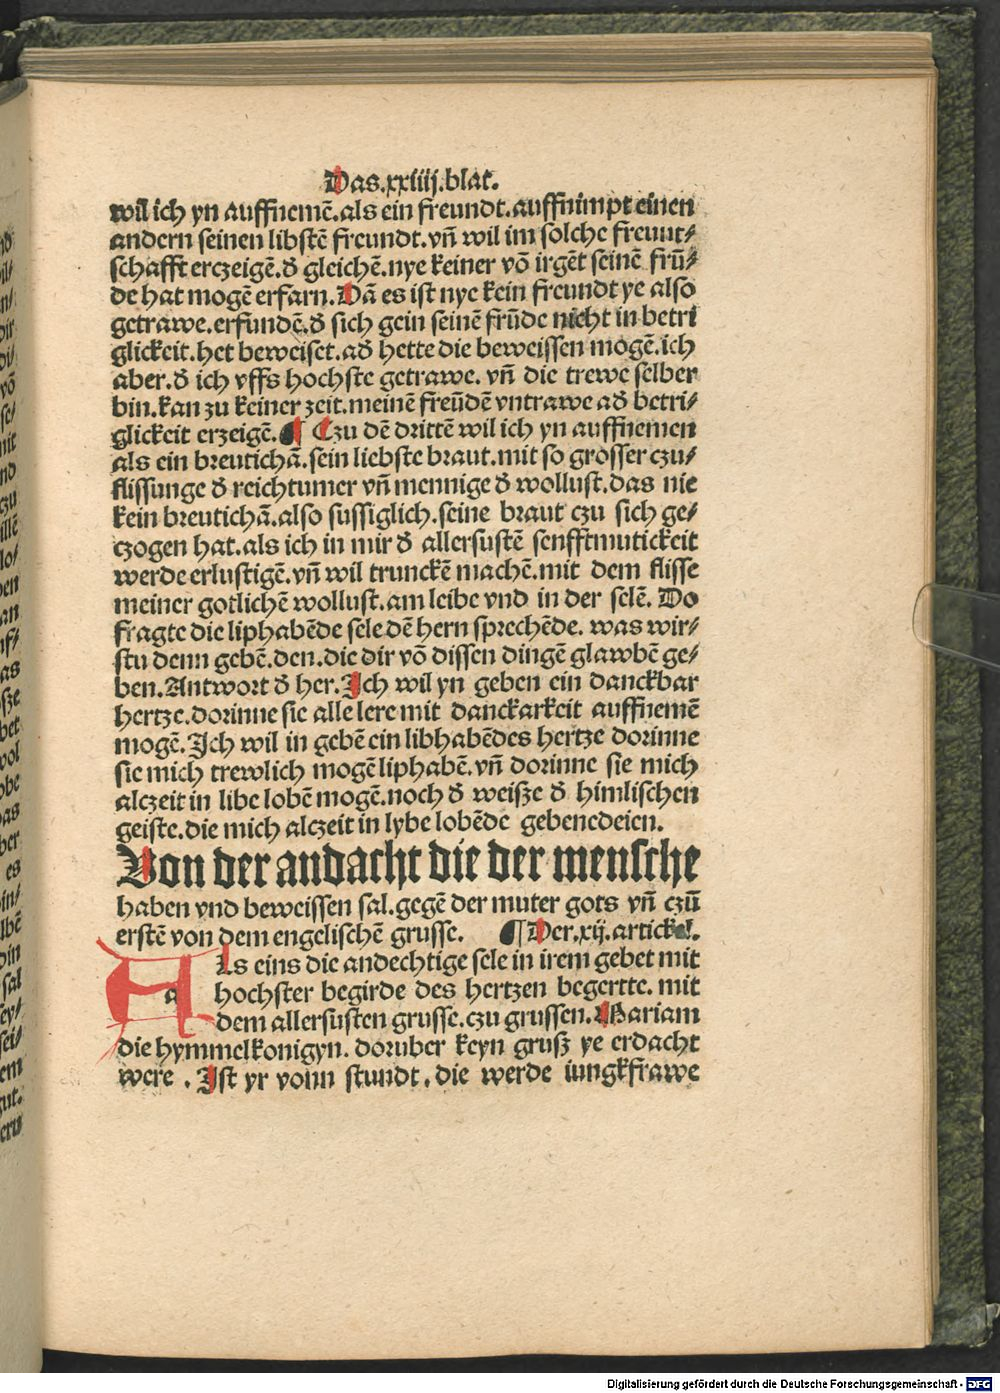 Das.xxiiij.blat.
wil ich yn auffnemē.als ein freundt.auffnimpt einen
andern seinen libstē freundt.vn̄ wil im solche freunt⸗
schafft erczeigē.d̕ gleichē.nye keiner vō irgēt seinē frū⸗
de hat mogē erfarn.Dā es ist nye kein freundt ye also
getrawe.erfundē.d̕ sich gein seinē frūde nicht in betri
glickeit.het beweiset.ad̕ hette die beweissen mogē.ich
aber.d̕ ich vffs hochste getrawe. vn̄ die trewe selber
bin.kan zu keiner zeit.meinē freūdē vntrawe ad̕ betri⸗
glickeit erzeigē.¶ Czu dē drittē wil ich yn auffnemen
als ein breutichā.sein liebste braut.mit so grosser czu⸗
flissunge d̕ reichtumer vn̄ mennige d̕ wollust.das nie
kein breutichā.also sussiglich.seine braut czu sich ge⸗
czogen hat.als ich in mir d̕ allersustē senfftmutickeit
werde erlustigē.vn̄ wil trunckē machē.mit dem flisse
meiner gotlichē wollust.am leibe vnd in der selē. Do
fragte die liphabēde sele dē hern sprechēde. was wir⸗
stu denn gebē.den.die dir vō dissen dingē glawbē ge⸗
ben.Antwort d̕ her.Ich wil yn geben ein danckbar
hertze.dorinne sie alle lere mit danckarkeit auffnemē
mogē.Ich wil in gebē ein libhabēdes hertze dorinne
sie mich trewlich mogē liphabē.vn̄ dorinne sie mich
alczeit in libe lobē mogē.noch d̕ weisze d̕ himlischen
geiste.die mich alczeit in lybe lobēde gebenedeien.
Von der andacht die der mensche
haben vnd beweissen sal.gegē der muter gots vn̄ czū
erstē von dem engelischē grusse. ¶Der.xij.artickel.
Als eins die andechtige sele in irem gebet mit
hochster begirde des hertzen begertte. mit
dem allersusten grusse.czu grussen.Mariam
die hymmelkonigyn. doruber keyn grusz ye erdacht
were . Ist yr vonn stundt. die werde iungkfrawe
Digitalisierung gefördert durch die Deutsche Forschungsgemeinschaft - DFG